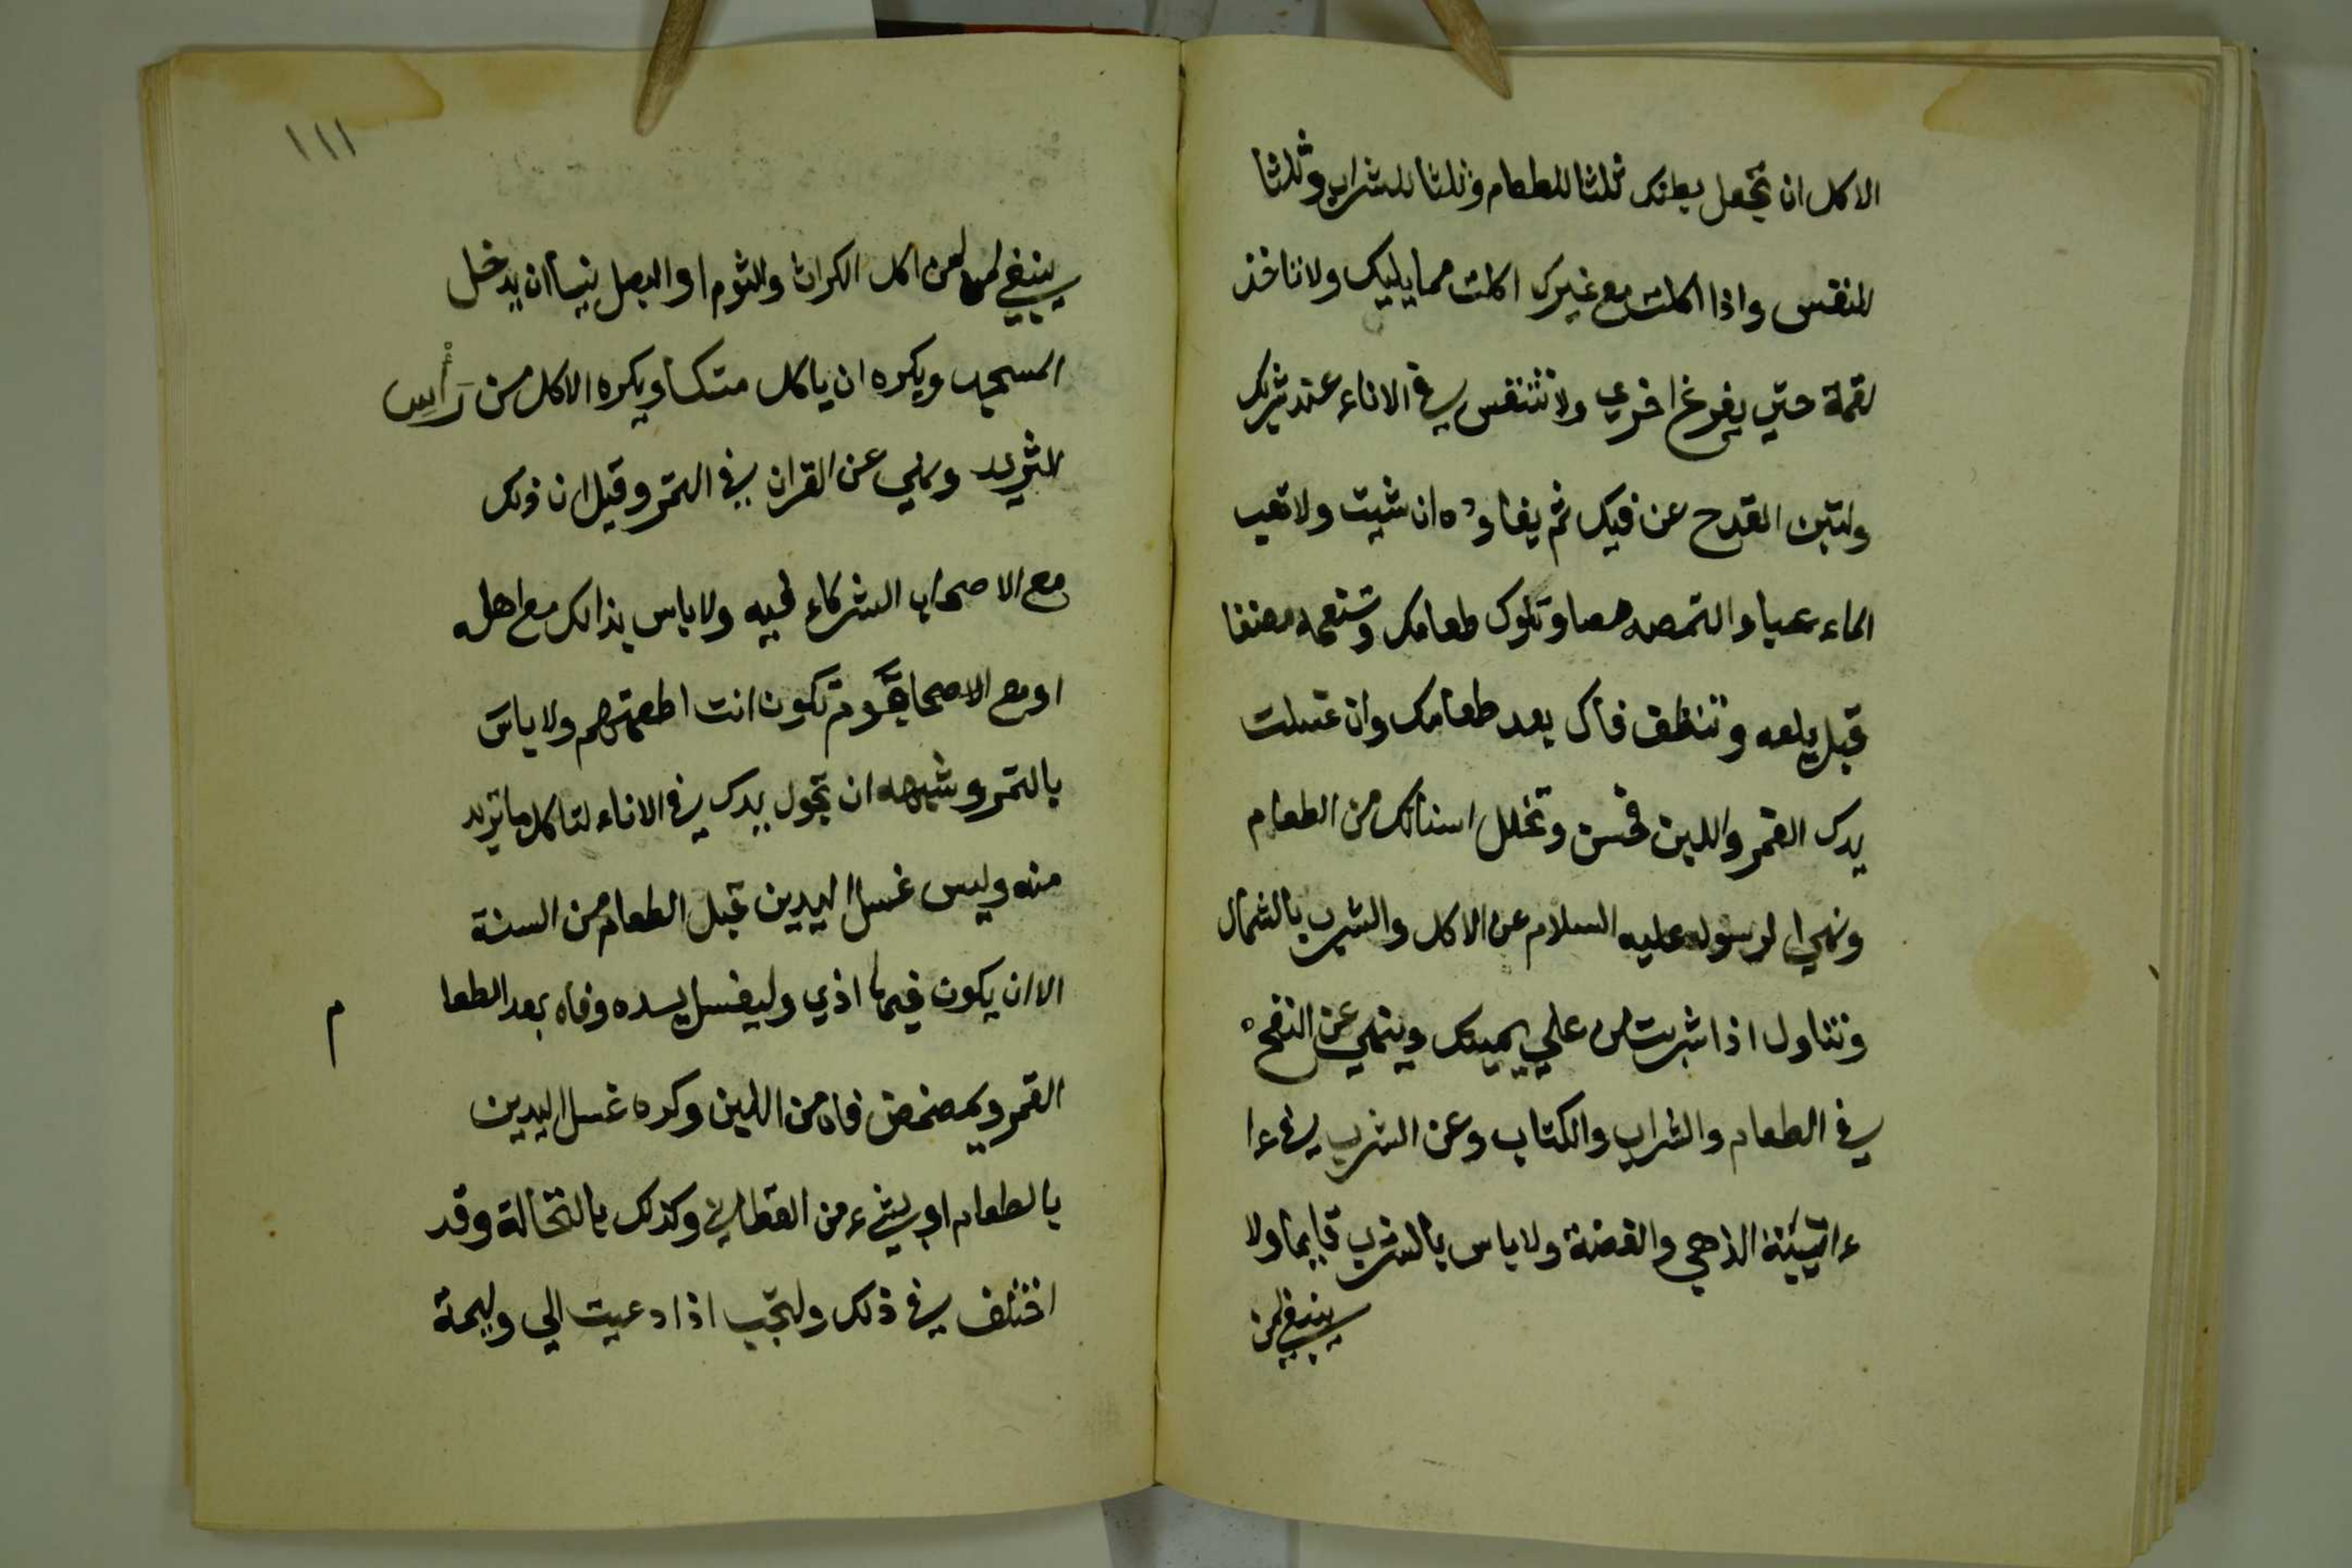 الاكل ان تجعل بطنك ثلثا للطعام وثلثا للشراب وثلثا
للنفس واذا اكلت مع غيرك اكلت مما يليك ولا تاخذ
لقمة حتي يفرغ اخري ولا تتنفس في الاناء عند شربك
ولتبن القدح عن فيك ثم يعاوده ان شيت ولا تعب
الماء عبا والتمصه مصا وتلوك طعامك وتنعمه مضغا
قبل بلعه وتنظف فاك بعد طعامك وان غسلت
يدك الغمر واللبن فحسن وتخلل اسنانك من الطعام
ونهي الرسول عليه السلام عن الاكل والشرب بالشمال
وتناول اذا شربت من علي يمينك وينهي عن النفخ
في الطعام والشراب والكتاب وعن الشرب في ءا
ءانيئة الذهب والفضة ولا باس بالشرب قايما ولا
ينبغي لمن
١١١
ينبغي لمن اكل الكراث والثوم او البصل نيئا ان يدخل
المسجد ويكره ان ياكل متكئا ويكره الاكل من رأس
الثريد ونهي عن القران في التمر وقيل ان ذلك
مع الاصحاب الشركاء فيه ولا باس بذالك مع اهله
او مع الاصحاب قوم تكون انت اطعمتهم ولا باس
بالتمر وشبهه ان تجول يدك في الاناء لتاكل ما تريد
منه وليس غسل اليدين قبل الطعام من السنة
الا ان يكون فيها اذي وليغسل يده وفاه بعد الطعا م
الغمر ويمضمض فاه من اللبن وكره غسل اليدين
بالطعام او بشيء من القطاني وكذلك بالنخالة وقد
اختلف في ذلك ولتجب اذا دعيت الي وليمة